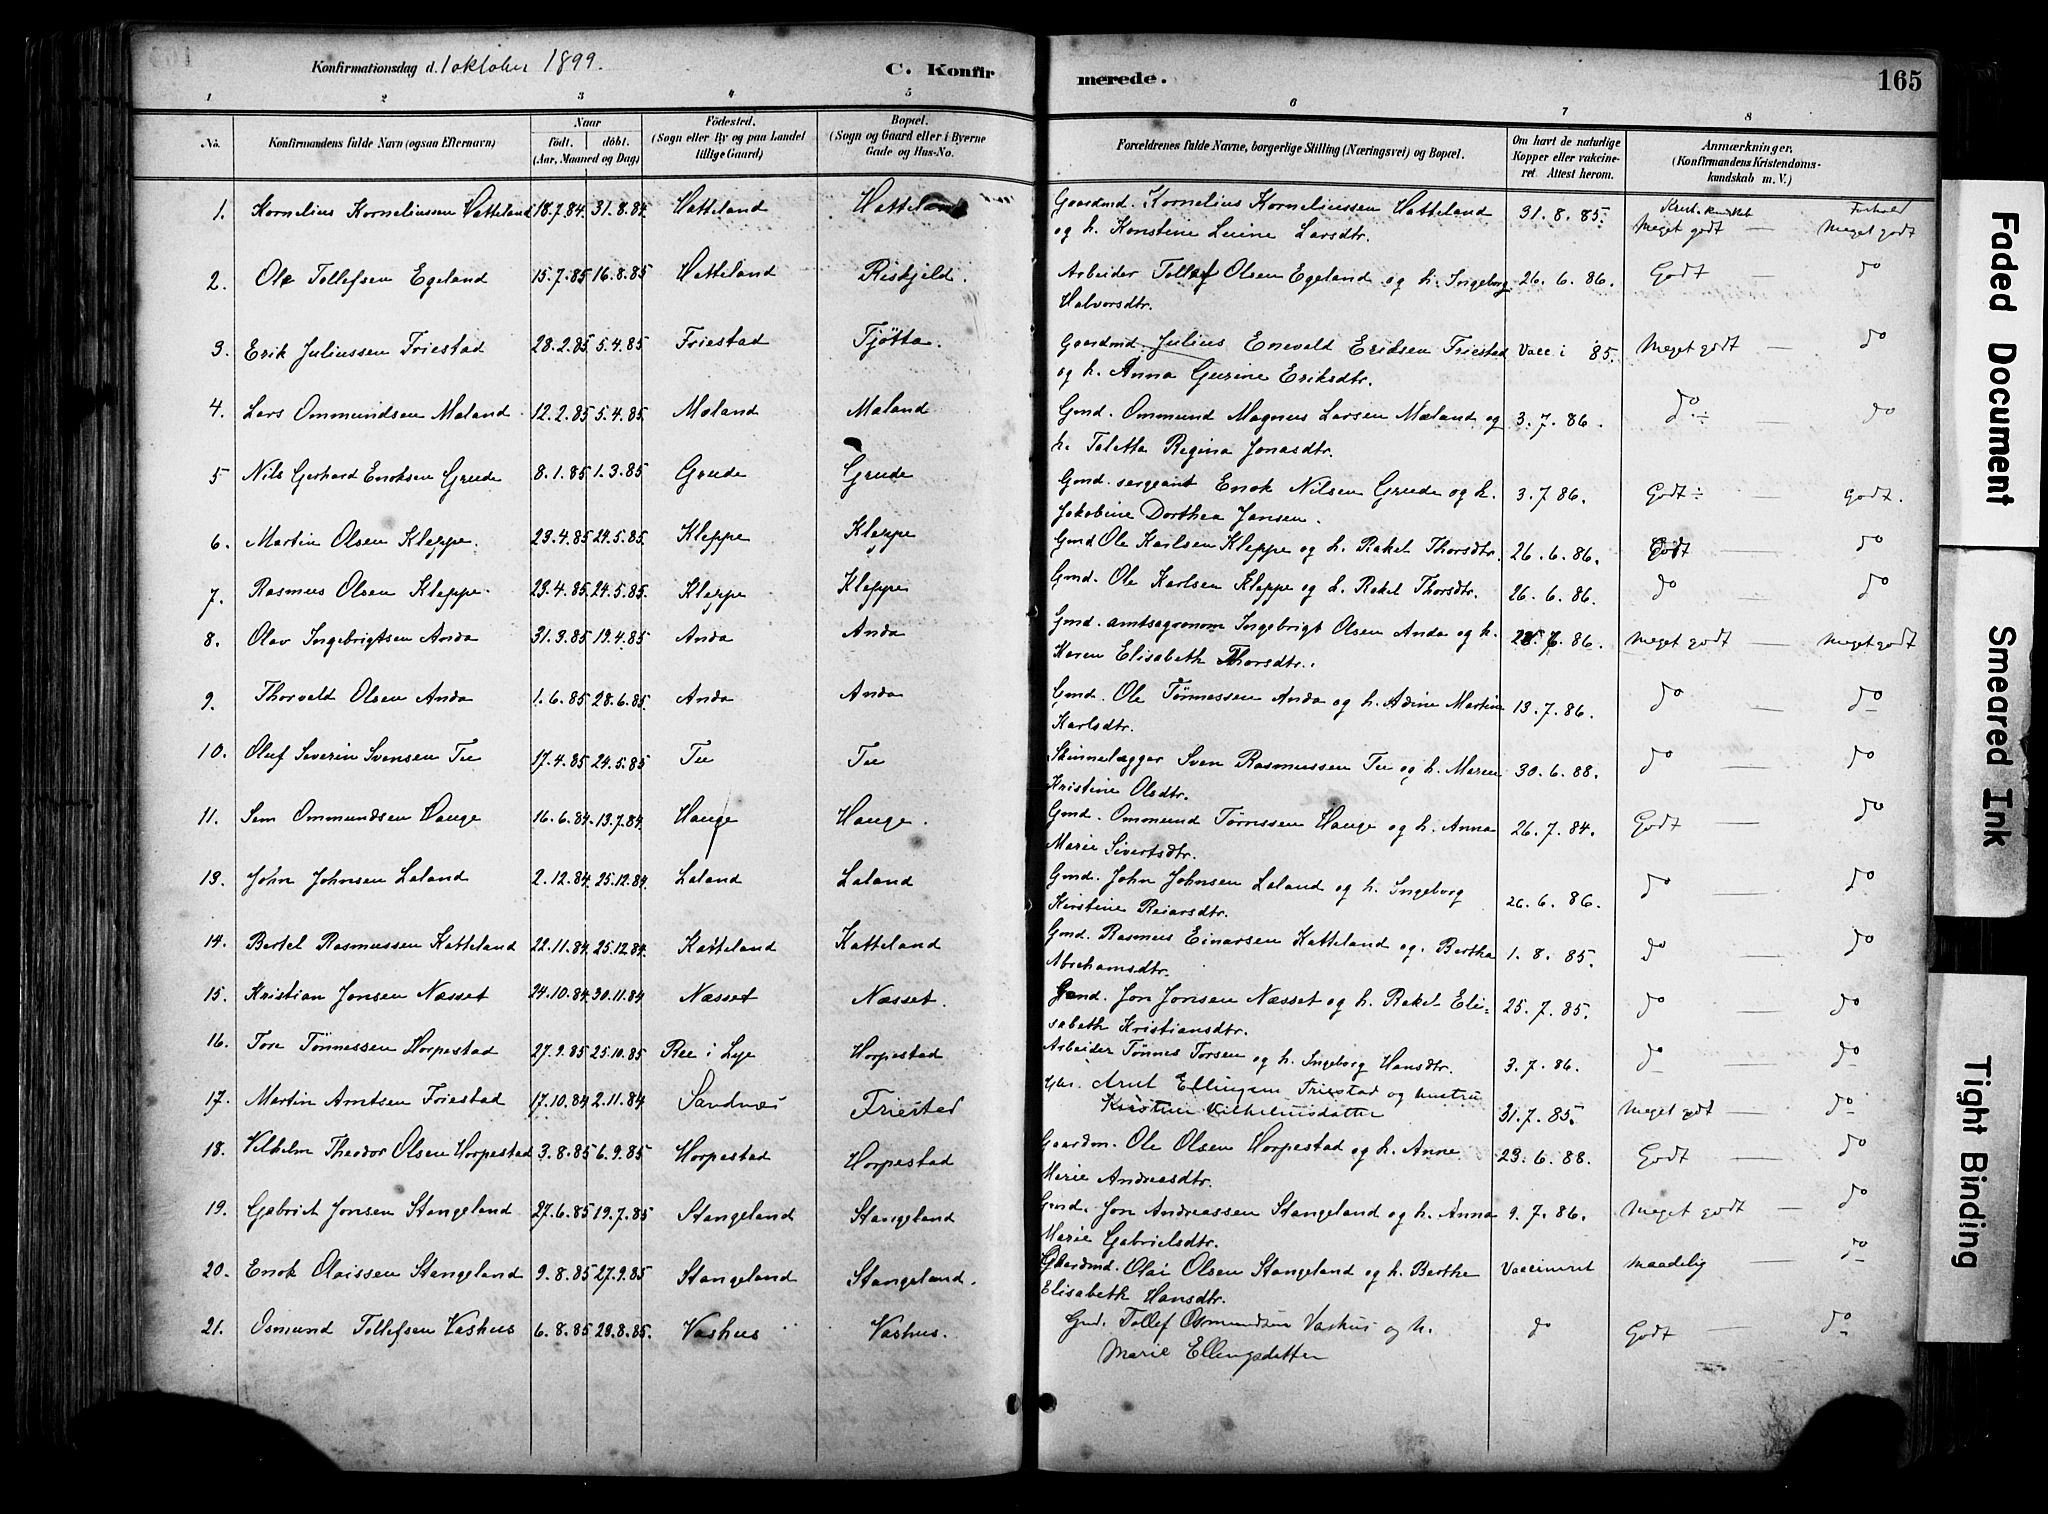 Konfirmationsdag d. 1 oktober 1899.
C. Konfirmerede.
165
1 2 3 4 5 6 7 8
No.
Konfirmandens fulde Navn (ogsaa Efternavn)
Naar
födt. döbt.
(Aar, Maaned og Dag)
Födested.
(Sogn eller By og paa Landet
tillige Gaard)
Bopæl.
(Sogn og Gaard eller i Byerne
Gade og Hus-No.
Forældrenes fulde Navne, borgerlige Stilling (Næringsvei) og Bopæl.
Om havt de naturlige
Kopper eller vakcine-
ret. Attest herom.
Anmærkninger.
(Konfirmandens Kristendoms-
kundskab m. V.)
1. Kornelius Korneliussen Hatteland 18.7.84. 31.8.84. Hatteland Hatteland Gaardmd. Kornelius Korneliussen Hatteland 31.8.85. Krist. kundskab Meget godt — Forhold Meget godt
og h. Konstine Luine Larsdtr.
2. Ole Tollefsen Egeland 15.7.85 16.8.85 Hatteland Riskjeld. Arbeider Tollef Olsen Egeland og h. Ingeborg 26.6.86. Godt — do
Halvorsdtr.
3. Erik Juliussen Friestad 28.2.85 5.4.85 Friestad Tjøtta. Gaardmd. Julius Enevald Eriksen Friestad Vacc. i 85. Meget godt — do
og h. Anna Gurine Eriksdtr.
4. Lars Ommundsen Mæland 12.2.85 5.4.85. Mæland Mæland Gmd. Ommund Magnus Larsen Mæland og 3.7.86. do ÷ — do
h. Taletta Regina Jonasdtr.
5 Nils Gerhard Enoksen Grude 8.1.85 1.3.85 Grude Grude Gmd. sergeant Enok Nilsen Grude og h. 3.7.86. Godt ÷ — godt.
Jakobine Dorthea Jansen.
6. Martin Olsen Kleppe. 23.4.85 24.5.85. Kleppe Kleppe Gmd Ole Karlsen Kleppe og h. Rakel Thorsdtr. 26.6.86. Godt — do
7. Rasmus Olsen Kleppe. 23.4.85 24.5.85. Kleppe Kleppe Gmd. Ole Karlsen Kleppe og h. Rakel Thorsdtr. 26.6.86. do — do
8. Olav Ingebrigtsen Anda 31.3.85 19.4.85 Anda Anda Gmd. amtsagronom Ingebrigt Olsen Anda og h. 86. Meget godt — Meget godt
Karen Elisabeth Thorsdtr.
9. Thorvald Olsen Anda 1.6.85 28.6.85. Anda Anda Gmd. Ole Tønnessen Anda og h. Adine Martine 13.7.86. do — do
Karlsdtr.
10. Oluf Severin Svensen Tu 17.4.85 24.5.85 Tu Tu Sven Rasmussen Tu og h. Maren 30.6.88. do — do
Kristine Olsdtr.
11. Sem Ommundsen Hauge 16.6.84. 13.7.84 Hauge Hauge. Gmd. Ommund Tørressen Hauge og h. Anna 26.7.84. Godt — do
Marie Sivertsdtr.
13. John Johnsen Laland 2.12.84 25.12.84. Laland Laland Gmd. John Johnsen Laland og h. Ingeborg 26.6.86. do — do
Kirstine Reiarsdtr.
14. Bertel Rasmussen Katteland 22.11.84 25.12.84 Katteland Katteland Gmd. Rasmus Einarsen Katteland og Bertha 1.8.85. do — do
Abrahamsdtr.
15. Kristian Jonsen Næsset 24.10.84. 30.11.84 Næsset Næsset. Gmd. Jon Jonsen Næsset og h. Rakel Eli- 25.7.85. do — do
sabeth Kristiansdtr.
16. Tore Tønnessen Horpestad 27.9.85 25.10.85 Ree i Lye Horpestad Arbeider Tønnes Torsen og h. Ingeborg Hansdtr. 3.7.86. do — do
17. Martin Arntsen Friestad 17.10.84 2.11.84 Sandnæs Friestad Gbr. Arnt Ellingsen Friestad og hustru 31.7.85. Meget godt — do
Kirstine Vilhelmsdatter
18. Vilhelm Theodor Olsen Horpestad 3.8.85 6.9.85 Horpestad Horpestad Gaardm. Ole Olsen Horpestad og h. Anne 23.6.88. Godt — do
Marie Andreasdtr.
19. Gabriel Jonsen Stangeland 27.6.85 19.7.85 Stangeland Stangeland Gmd. Jon Andreassen Stangeland og h. Anna 9.7.86. Meget godt — do
Marie Gabrielsdtr.
20. Enok Olaissen Stangeland 9.8.85 27.9.85 Stangeland Stangeland. Gaardmd. Olai Olsen Stangeland og h. Berthe Vaccineret maadelig — do
Elisabeth Hansdtr.
21. Osmund Tollefsen Vashus 6.8.85 23.8.85. Vashus Vashus. Gmd. Tollef Osmundsen Vashus og h. do Godt — do
Marie Ellingsdatter
Faded Document
Smeared Ink
Tight Binding